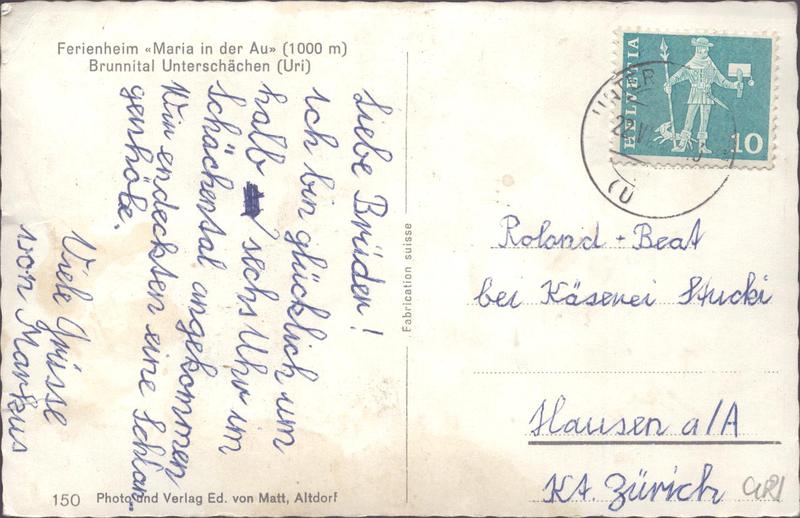 Ferienheim «Maria in der Au» (1000 m)
Brunnital Unterschächen (Uri)
Liebe Brüder!
ich bin glücklich um
halb sechs Uhr im
Schächental angekommen
Wir endeckten eine Schlan-
genhöle.
Viele Grüsse
von Markus
150 Photo und Verlag Ed. von Matt, Altdorf
Fabrication suisse
HELVETIA
10
Roland + Beat
bei Käserei Stucki
Hausen a/A
Kt. Zürich